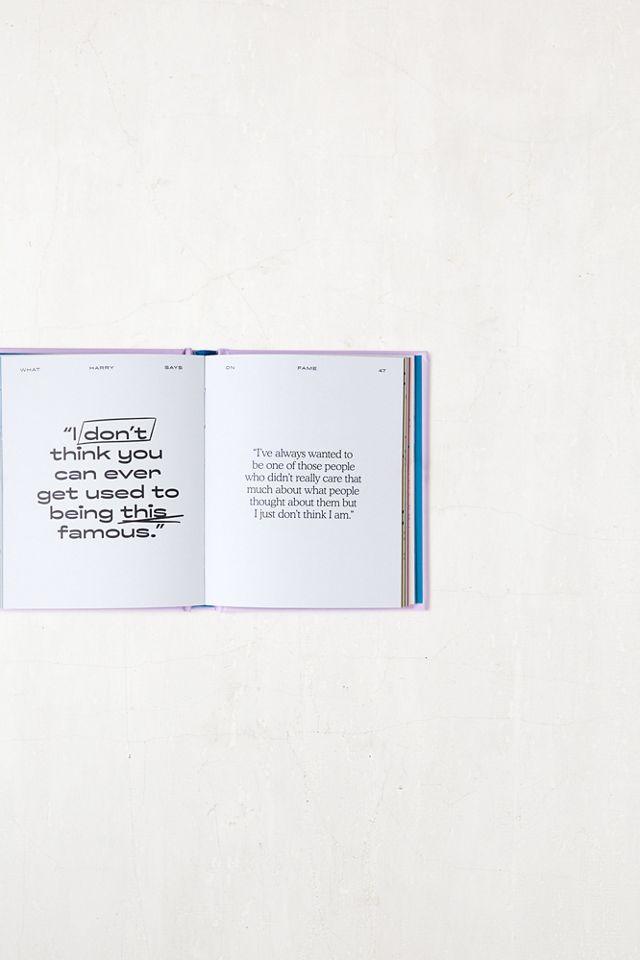 WHAT HARRY SAYS
“I don’t
think you
can ever
get used to
being this
famous.”
ON FAME 47
“I’ve always wanted to
be one of those people
who didn’t really care that
much about what people
thought about them but
I just don’t think I am.”